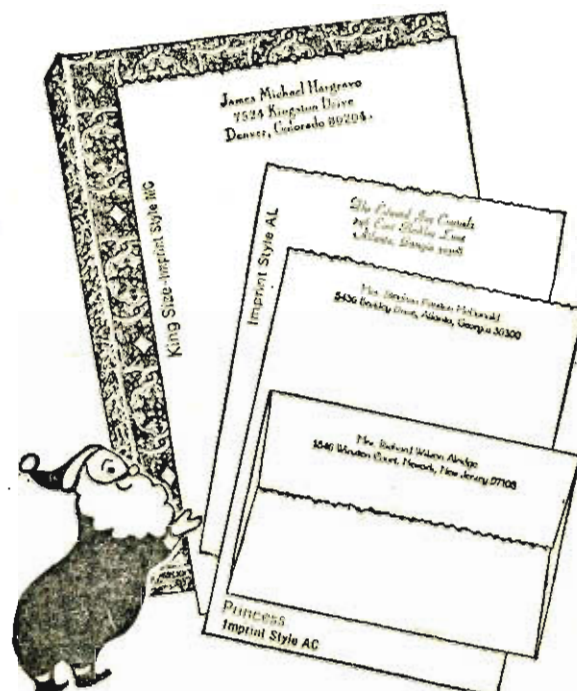 James Michael Hargrave
7524 Kingston Drive
Denver, Colorado 80204
King Size-Imprint Style MC
Imprint Style AL
Atlanta, Georgia
Mrs. McDonald
5436 Drive, Atlanta, Georgia 30300
Mrs. Richard Wilson
5540 Winston Court, Newark, New Jersey 07108
Princess
Imprint Style AC